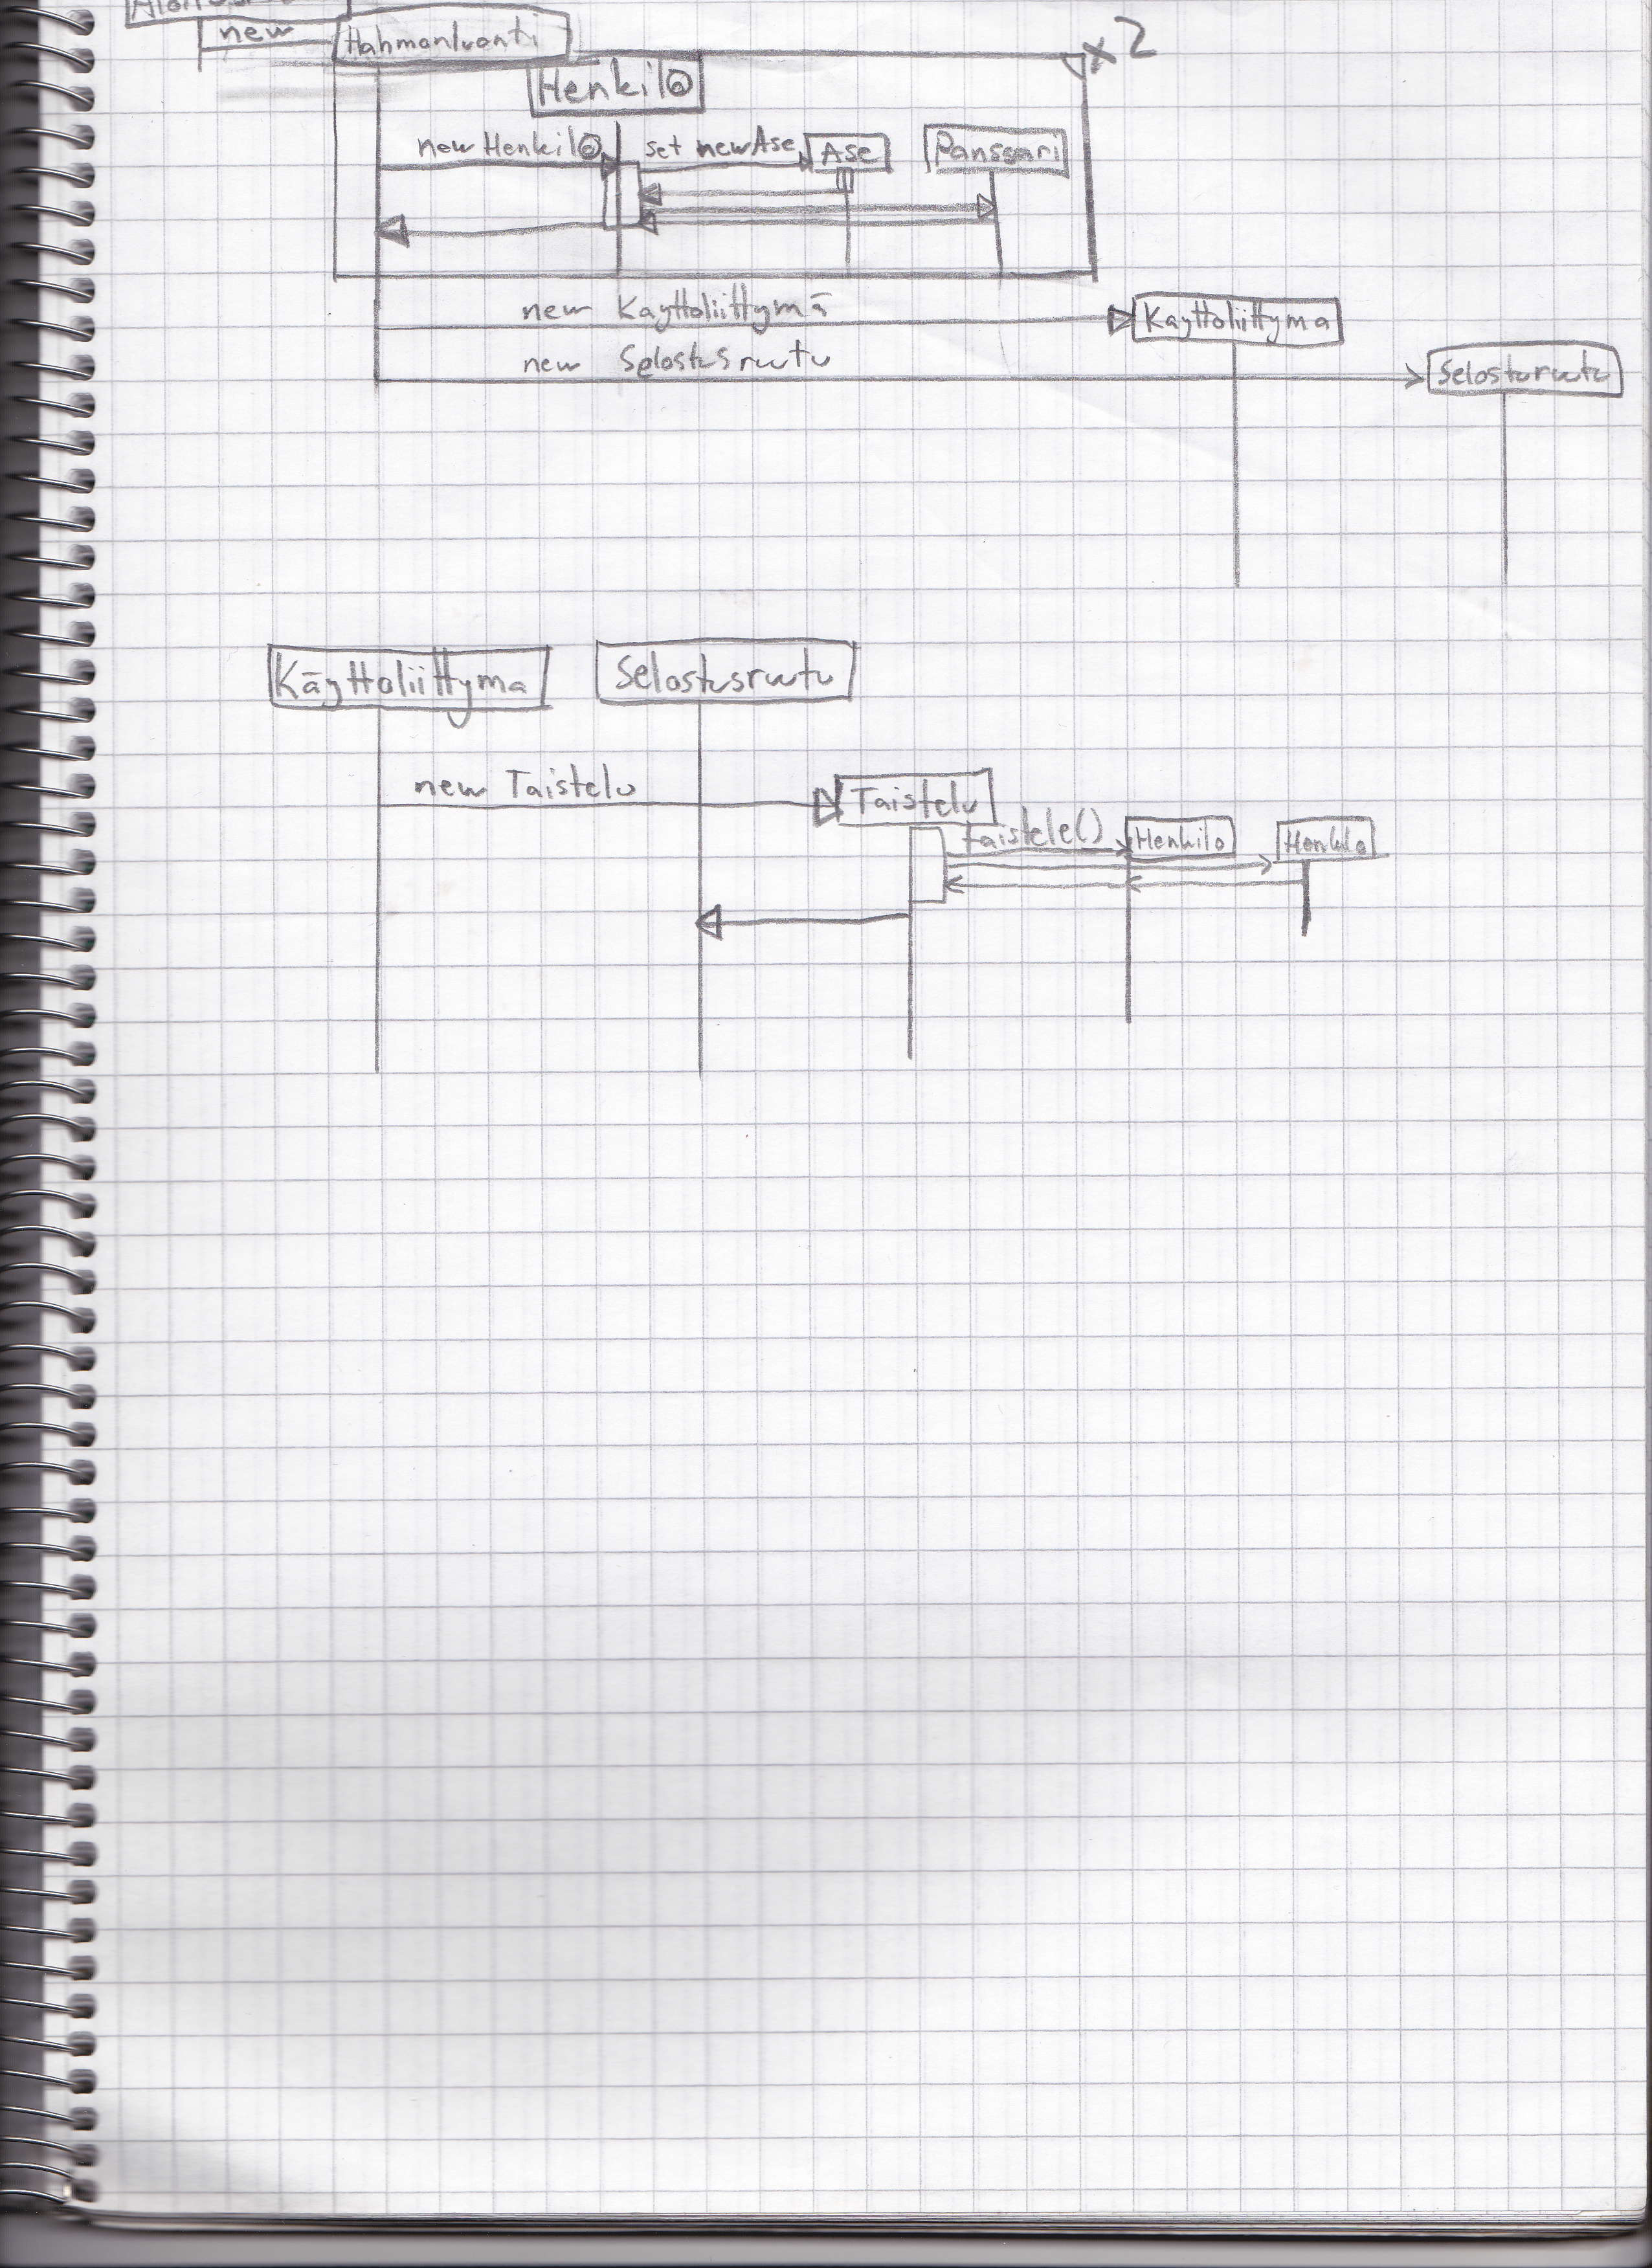 new Hahmonluonti x2
Henkilö
new Henkilö set new Ase Ase Panssari
new Käyttöliittymä Käyttöliittyma
new Selostusruutu Selosturuutu
Käyttöliittyma Selostusruutu
new Taistelu Taistelu
taistele() Henkilo Henkilo